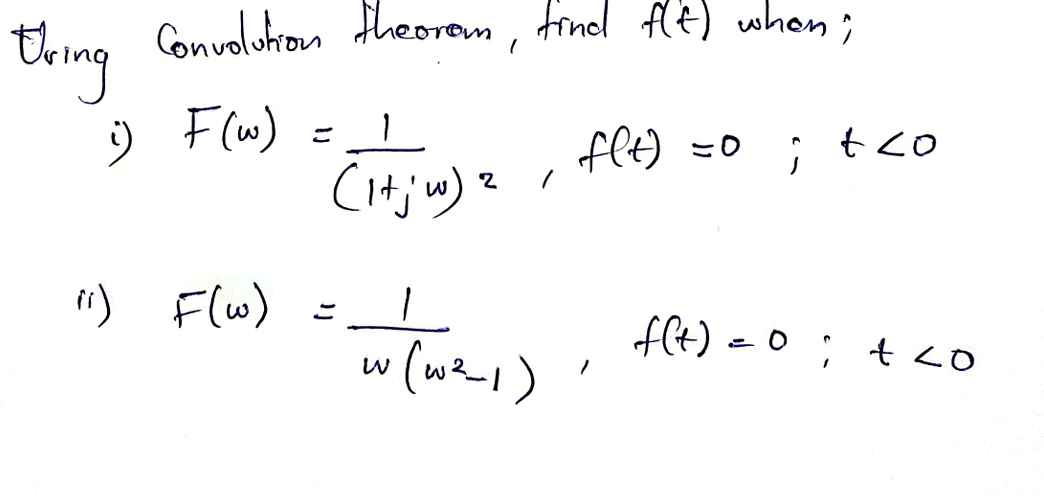 Using Convolution theorem, find f(t) when;
i) F(w) = 1/(1+jw)², f(t) = 0 ; t<0
ii) F(w) = 1/w(w²-1), f(t) = 0 ; t<0